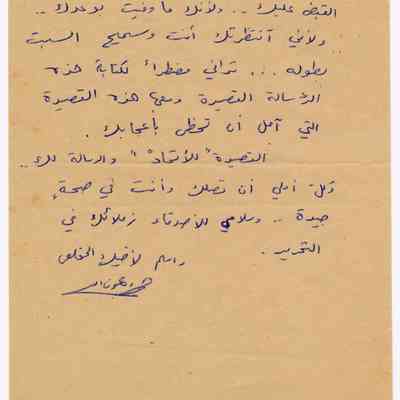 القبض عليك .. ولأنك ما وفيت بوعدك ..
ولأني انتظرتك أنت وسميح السبت
بطوله ... تراني مضطراً لكتابة هذه
الرسالة القصيرة ومعها هذه القصيدة
التي آمل أن تحظى بإعجابك .
القصيدة "للاتحاد" والرسالة لك ..
كل أملي أن تصلك وأنت في صحة
جيدة .. وسلامي للأصدقاء زملائك في
التحرير .
واسلم لأخيك المخلص